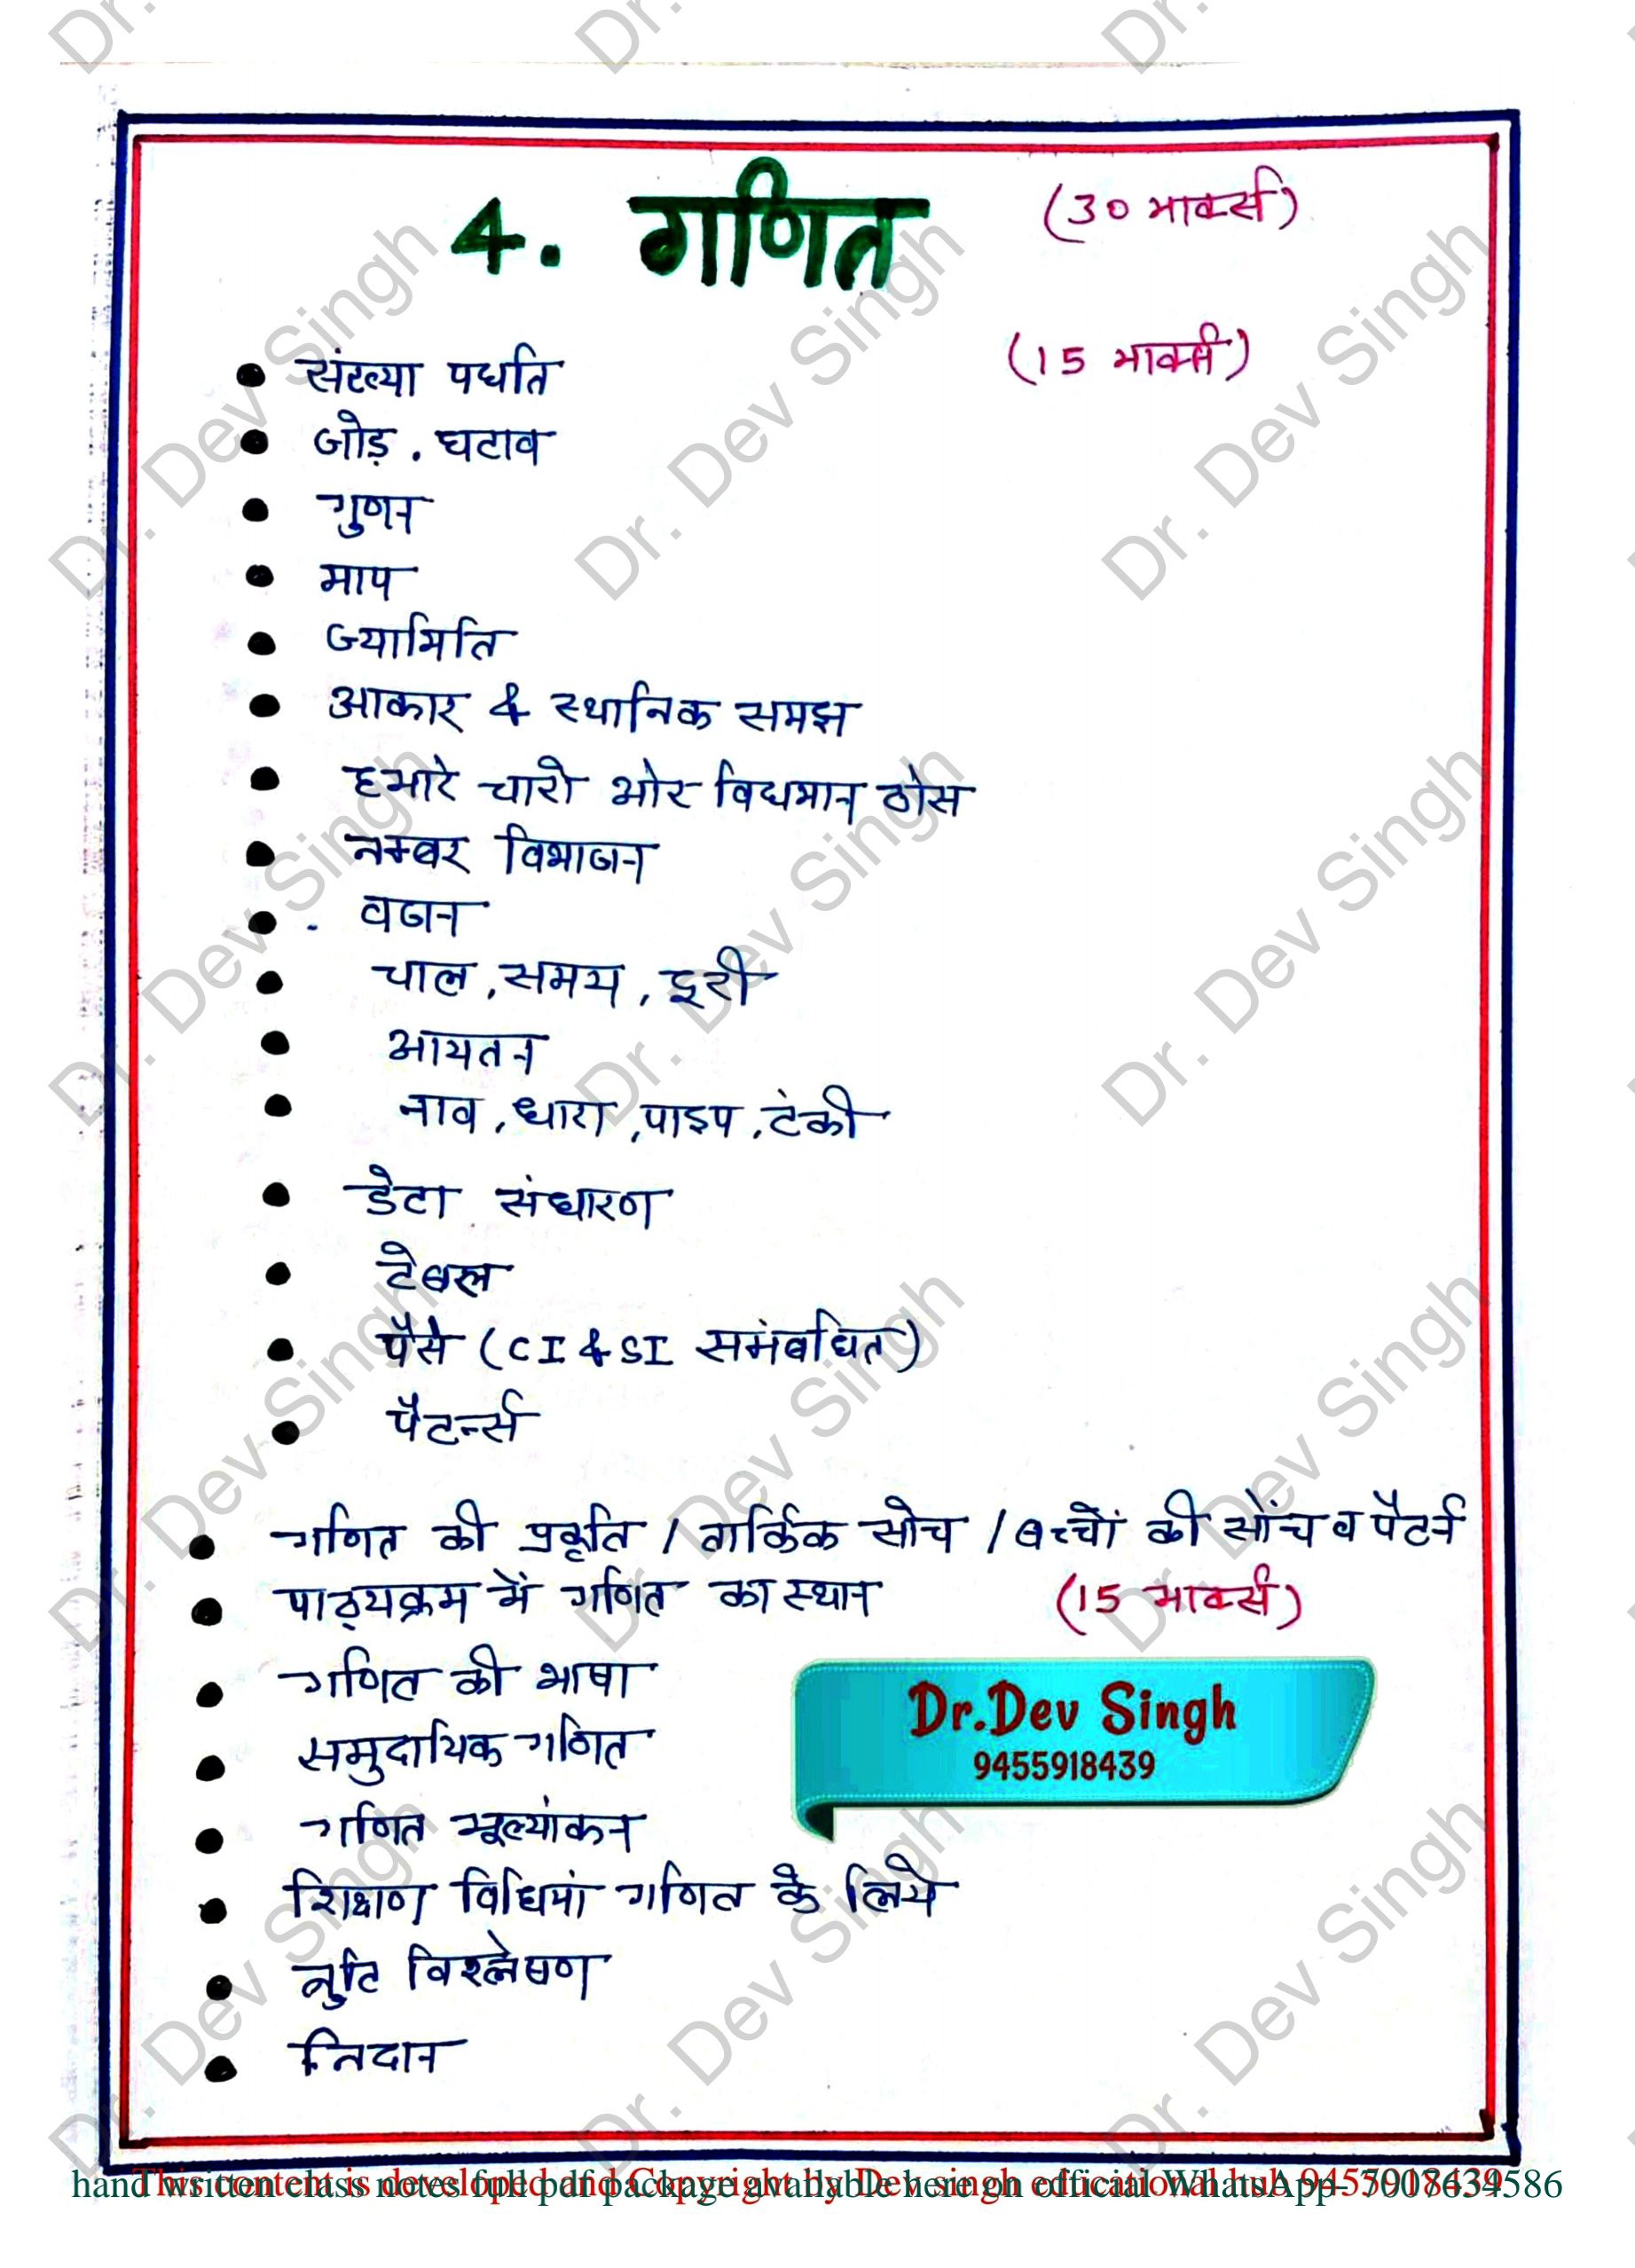 4. गणित (30 मार्क्स)
• संख्या पर्धात (15 मार्क्स)
• जोड़ . घटाव
• गुणन
• माप
• ज्यामिति
• आकार & स्थानिक समझ
• हमारे चारो ओर विद्यमान ठोस
• नम्बर विभाजन
• . वजन
• चाल, समय, दूरी
• आयतन
• नाव, धारा, पाइप, टंकी
• डेटा संधारण
• टेबल
• पैसे (CI & SI समंबधित)
• पैटर्न्स
• गणित की प्रकृति / तार्किक सोच / बच्चों की सोंच व पैटर्न
• पाठ्यक्रम में गणित का स्थान (15 मार्क्स)
• गणित की भाषा
• समुदायिक गणित
Dr.Dev Singh
9455918439
• गणित मूल्यांकन
• शिक्षण विधियां गणित के लिये
• त्रुटि विश्लेषण
• निदान
This content is developed and Copyright by Dev singh educational hub 9455918439
hand written class notes full pdf package available here on official WhatsApp- 7007634586
Dr. Dev Singh